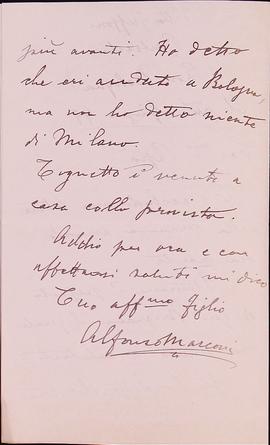 più avanti. Ho detto
che eri andato a Bologna,
ma non ho detto niente
di Milano.
Tognetto è venuto a
casa colla provista.
Addio per ora e con
affettuosi saluti mi dico
Tuo aff.mo figlio
Alfonso Marconi